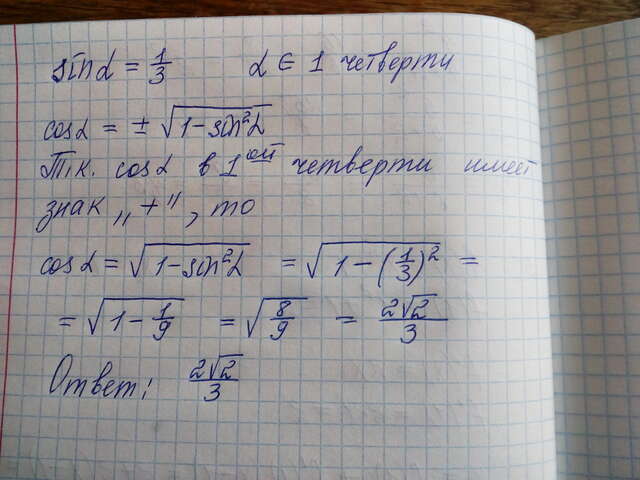 sinα = 1/3    α ∈ 1 четверти
cosα = ± √(1-sin²α)
Т.к. cosα в 1ой четверти имеет
знак „+", то
cosα = √(1-sin²α) = √(1-(1/3)²) =
= √(1-1/9) = √(8/9) = 2√2/3
Ответ: 2√2/3